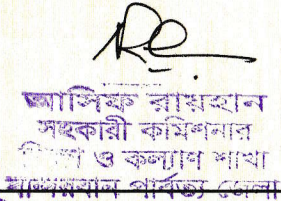 আসিফ রায়হান
সহকারী কমিশনার
ও কল্যাণ শাখা
বান্দরবান পার্বত্য জেলা